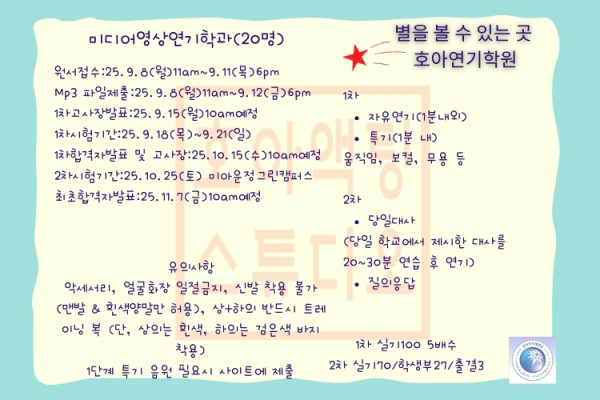 미디어영상연기학과(20명)
원서접수:25.9.8(월)11am~9.11(목)6pm
Mp3 파일제출:25.9.8(월)11am~9.12(금)6pm
1차고사장발표:25.9.15(월)10am예정
1차시험기간:25.9.18(목)~9.21(일)
1차합격자발표 및 고사장:25.10.15(수)10am예정
2차시험기간:25.10.25(토) 미아운정그린캠퍼스
최초합격자발표:25.11.7(금)10am예정
유의사항
악세서리, 얼굴화장 일절금지, 신발 착용 불가
(맨발 & 흰색양말만 허용), 상+하의 반드시 트레
이닝 복 (단, 상의는 흰색, 하의는 검은색 바지
착용)
1단계 특기 음원 필요시 사이트에 제출
별을 볼 수 있는 곳
호아연기학원
1차
• 자유연기(1분내외)
• 특기(1분 내)
움직임, 보컬, 무용 등
2차
• 당일대사
(당일 학교에서 제시한 대사를
20~30분 연습 후 연기)
• 질의응답
1차 실기100 5배수
2차 실기70/학생부27/출결3
호아액팅
스튜디오